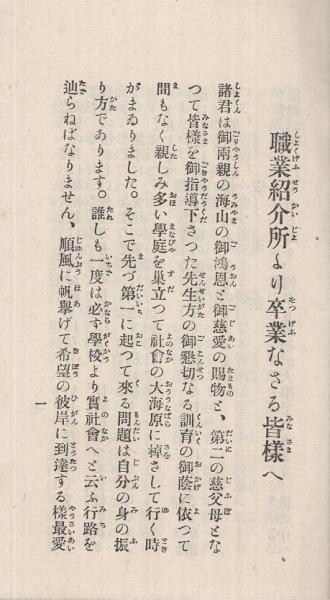 職業紹介所より卒業なさる皆様へ
諸君は御兩親の海山の御鴻恩と御慈愛の賜物と、第二の慈父母とな
つて皆樣を御指導下さつた先生方の御懇切なる訓育の御蔭に依つて
間もなく親しみ多い學庭を巢立つて社會の大海原に棹さして行く時
がまゐりました。そこで先づ第一に起つて來る問題は自分の身の振
り方であります。誰しも一度は必ず學校より實社會へと云ふ行路を
辿らねばなりません、順風に帆擧げて希望の彼岸に到達する樣最愛
一